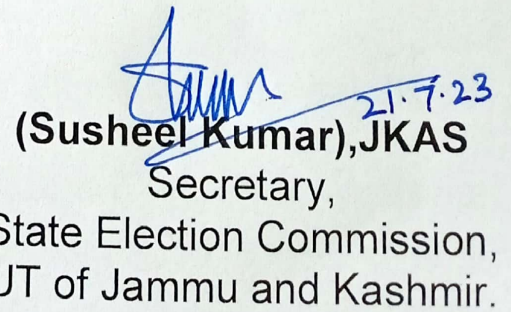 21.7.23
(Susheel Kumar),JKAS
Secretary,
State Election Commission,
UT of Jammu and Kashmir.